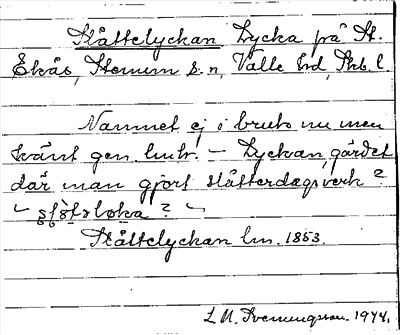 Slåttelyckan Lycka på St.
Ekås, Stenum s:n, Valle hd, Skb. l.
Namnet ej i bruk nu men
känt gen. lmtr. – Lyckan, gärdet
där man gjort slåtterdagsverk?
Slåttelyckan lm. 1853.
L. M. Svenungsson. 1944.